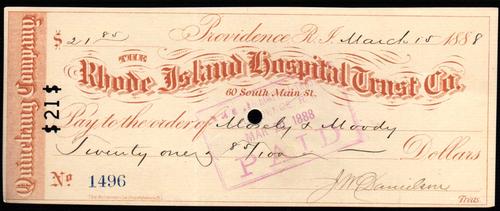 Quinebaug Company,
$ 21.85
Providence R.I. March 15 1888
THE
Rhode Island Hospital Trust Co.
60 South Main St.
$21$
Pay to the order of Mosely & Moody
Twenty one 85/100 Dollars
MAR 1888
PAID
No 1496
J W Danielson
Treas.